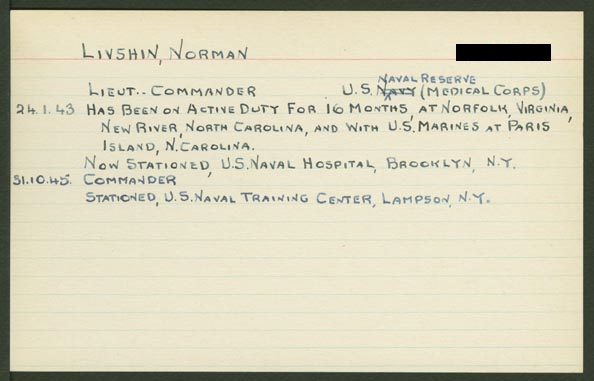 LIVSHIN, NORMAN
NAVAL RESERVE
LIEUT.. COMMANDER U.S. NAVY (MEDICAL CORPS)
24.1.43 HAS BEEN ON ACTIVE DUTY FOR 16 MONTHS, AT NORFOLK, VIRGINIA,
NEW RIVER, NORTH CAROLINA, AND WITH U.S. MARINES AT PARIS
ISLAND, N. CAROLINA.
NOW STATIONED, U.S. NAVAL HOSPITAL, BROOKLYN, N.Y.
31.10.45. COMMANDER
STATIONED, U.S. NAVAL TRAINING CENTER, LAMPSON, N.Y.